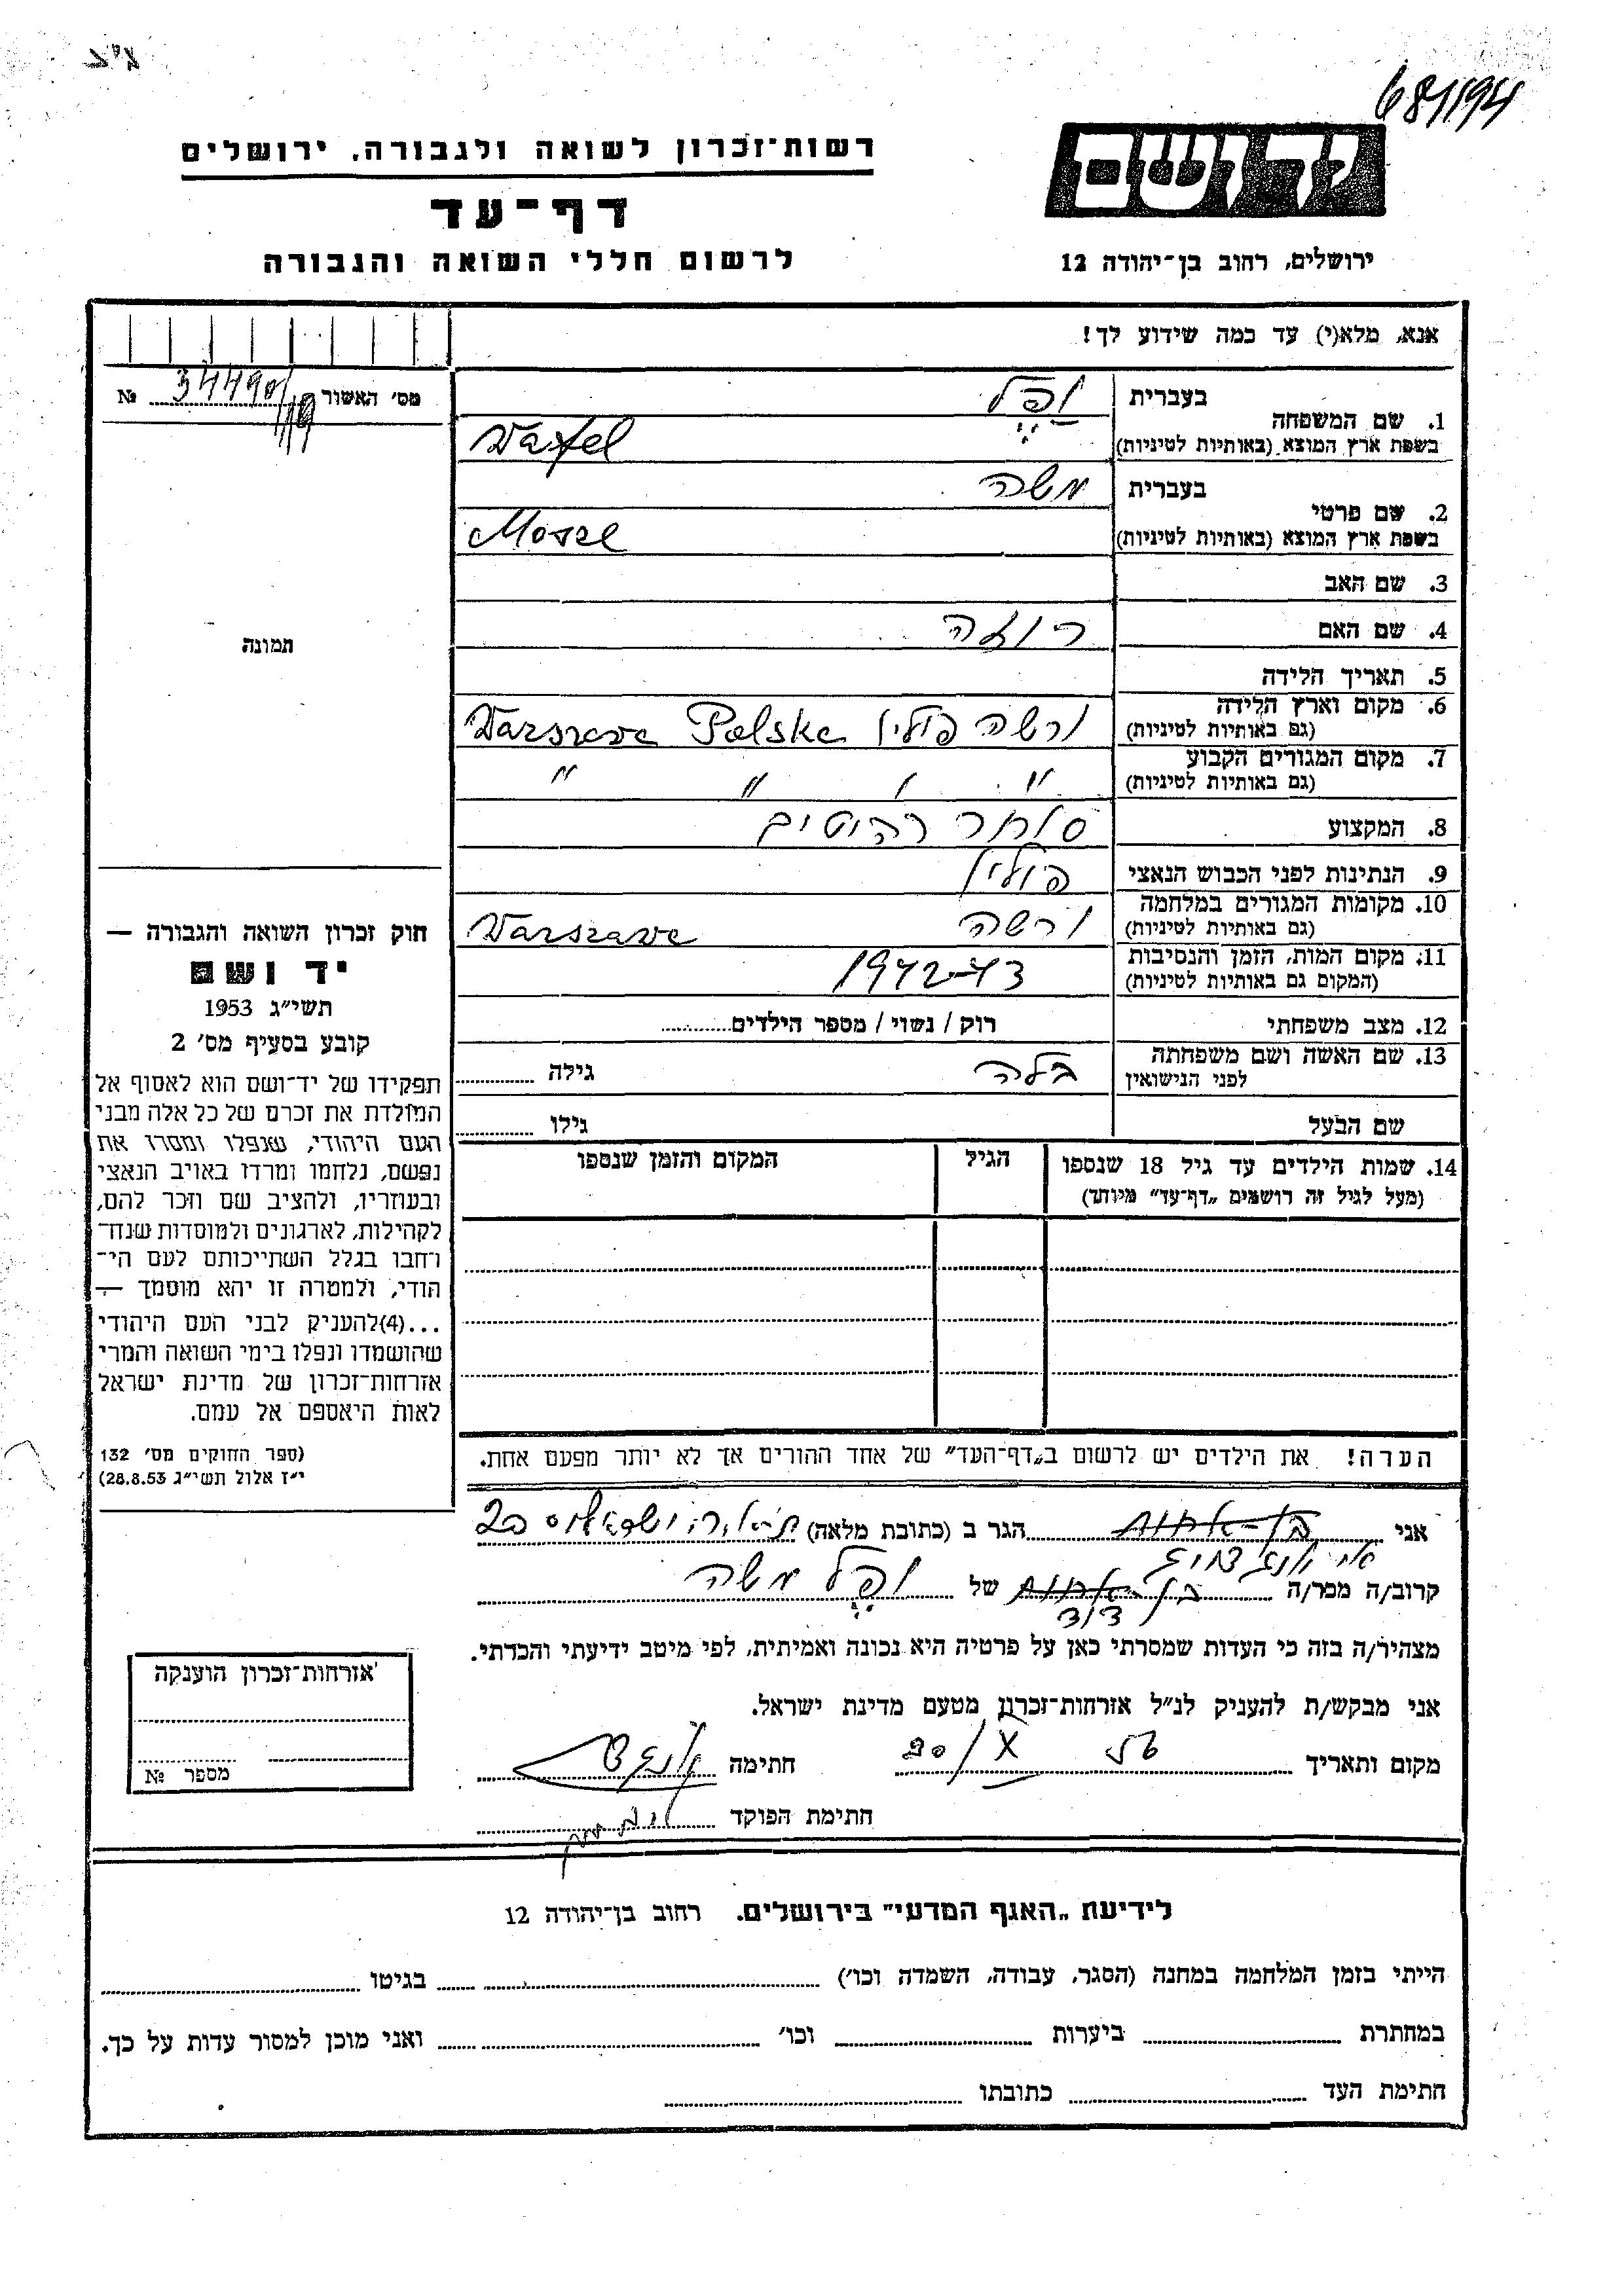 681194
רשות־זכרון לשואה ולגבורה, ירושלים
דף־עד
לרשום חללי השואה והגבורה
ידושם
ירושלים, רחוב בן־יהודה 12
אנא, מלא(י) עד כמה שידוע לך!
מס׳ האשור № 34490
1. שם המשפחה
בעברית ופל
בשפת ארץ המוצא (באותיות לטיניות) Wafel
2. שם פרטי
בעברית משה
בשפת ארץ המוצא (באותיות לטיניות)
3. שם האב
4. שם האם רוזה
5. תאריך הלידה
6. מקום וארץ הלידה
(גם באותיות לטיניות) ורשה פולין Warszawa Polska
7. מקום המגורים הקבוע
(גם באותיות לטיניות) " " " "
8. המקצוע סוחר רהיטים
9. הנתינות לפני הכבוש הנאצי פולין
10. מקומות המגורים במלחמה
(גם באותיות לטיניות) ורשה Warszawa
11. מקום המות, הזמן והנסיבות
(המקום גם באותיות לטיניות) 1942-43
12. מצב משפחתי רוק / נשוי / מספר הילדים
13. שם האשה ושם משפחתה
לפני הנישואין בלה גילה
שם הבעל גילו
14. שמות הילדים עד גיל 18 שנספו
(מעל לגיל זה רושמים „דף־עד״ מיוחד)
הגיל
המקום והזמן שנספו
הערה! את הילדים יש לרשום ב„דף־העד״ של אחד ההורים אך לא יותר מפעם אחת.
תמונה
חוק זכרון השואה והגבורה —
יד ושם
תשי״ג 1953
קובע בסעיף מס׳ 2
תפקידו של יד־ושם הוא לאסוף אל
המולדת את זכרם של כל אלה מבני
העם היהודי, שנפלו ומסרו את
נפשם, נלחמו ומרדו באויב הנאצי
ובעוזריו, ולהציב שם וזכר להם,
לקהילות, לארגונים ולמוסדות שנח־
רחבו בגלל השתייכותם לעם הי־
הודי, ולמטרה זו יהא מוסמך —
...(4)להעניק לבני העם היהודי
שהושמדו ונפלו בימי השואה והמרי
אזרחות־זכרון של מדינת ישראל
לאות היאספם אל עמם.
(ספר החוקים מס׳ 132
י״ז אלול תשי״ג 28.8.53)
אני בן-אחות הגר ב (כתובת מלאה)
קרוב/ה מכר/ה בן-אחות של ופל משה
דוד
מצהיר/ה בזה כי העדות שמסרתי כאן על פרטיה היא נכונה ואמיתית, לפי מיטב ידיעתי והכרתי.
אני מבקש/ת להעניק לנ״ל אזרחות־זכרון מטעם מדינת ישראל.
מקום ותאריך חתימה
חתימת הפוקד
אזרחות־זכרון הוענקה
מספר №
לידיעת „האגף המדעי״ בירושלים. רחוב בן־יהודה 12
הייתי בזמן המלחמה במחנה (הסגר, עבודה, השמדה וכו׳) בגיטו
במחתרת ביערות וכו׳ ואני מוכן למסור עדות על כך.
חתימת העד כתובתו